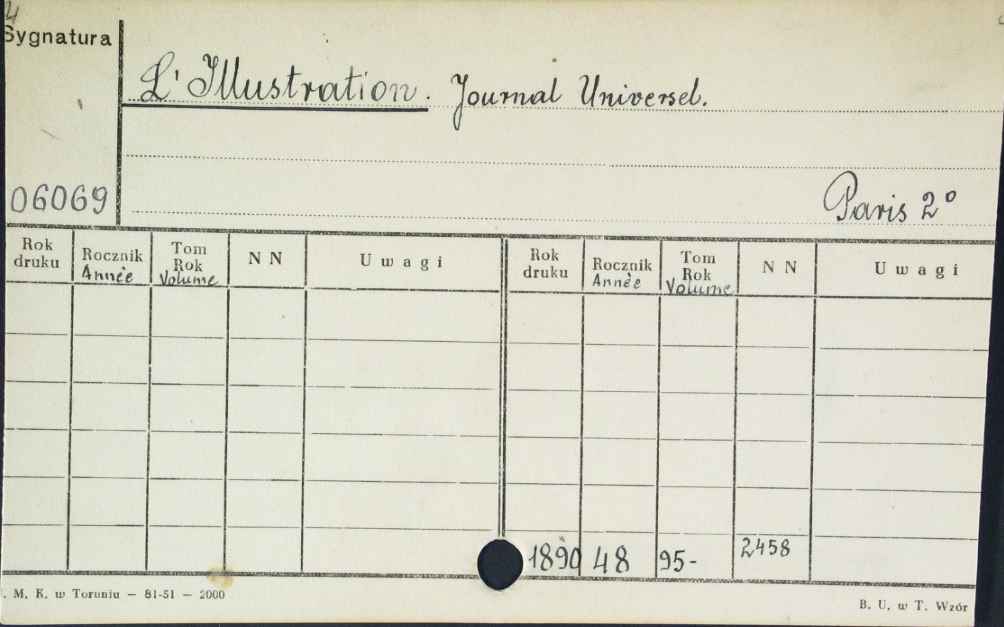 Sygnatura
L'Illustration. Journal Universel.
06069
Paris 2°
Rok druku Rocznik Année Tom Rok Volume N N Uwagi Rok druku Rocznik Année Tom Rok Volume N N Uwagi
1890 48 95- 2458
M. K. w Toruniu — 81-51 — 2000
B. U. w T. Wzór